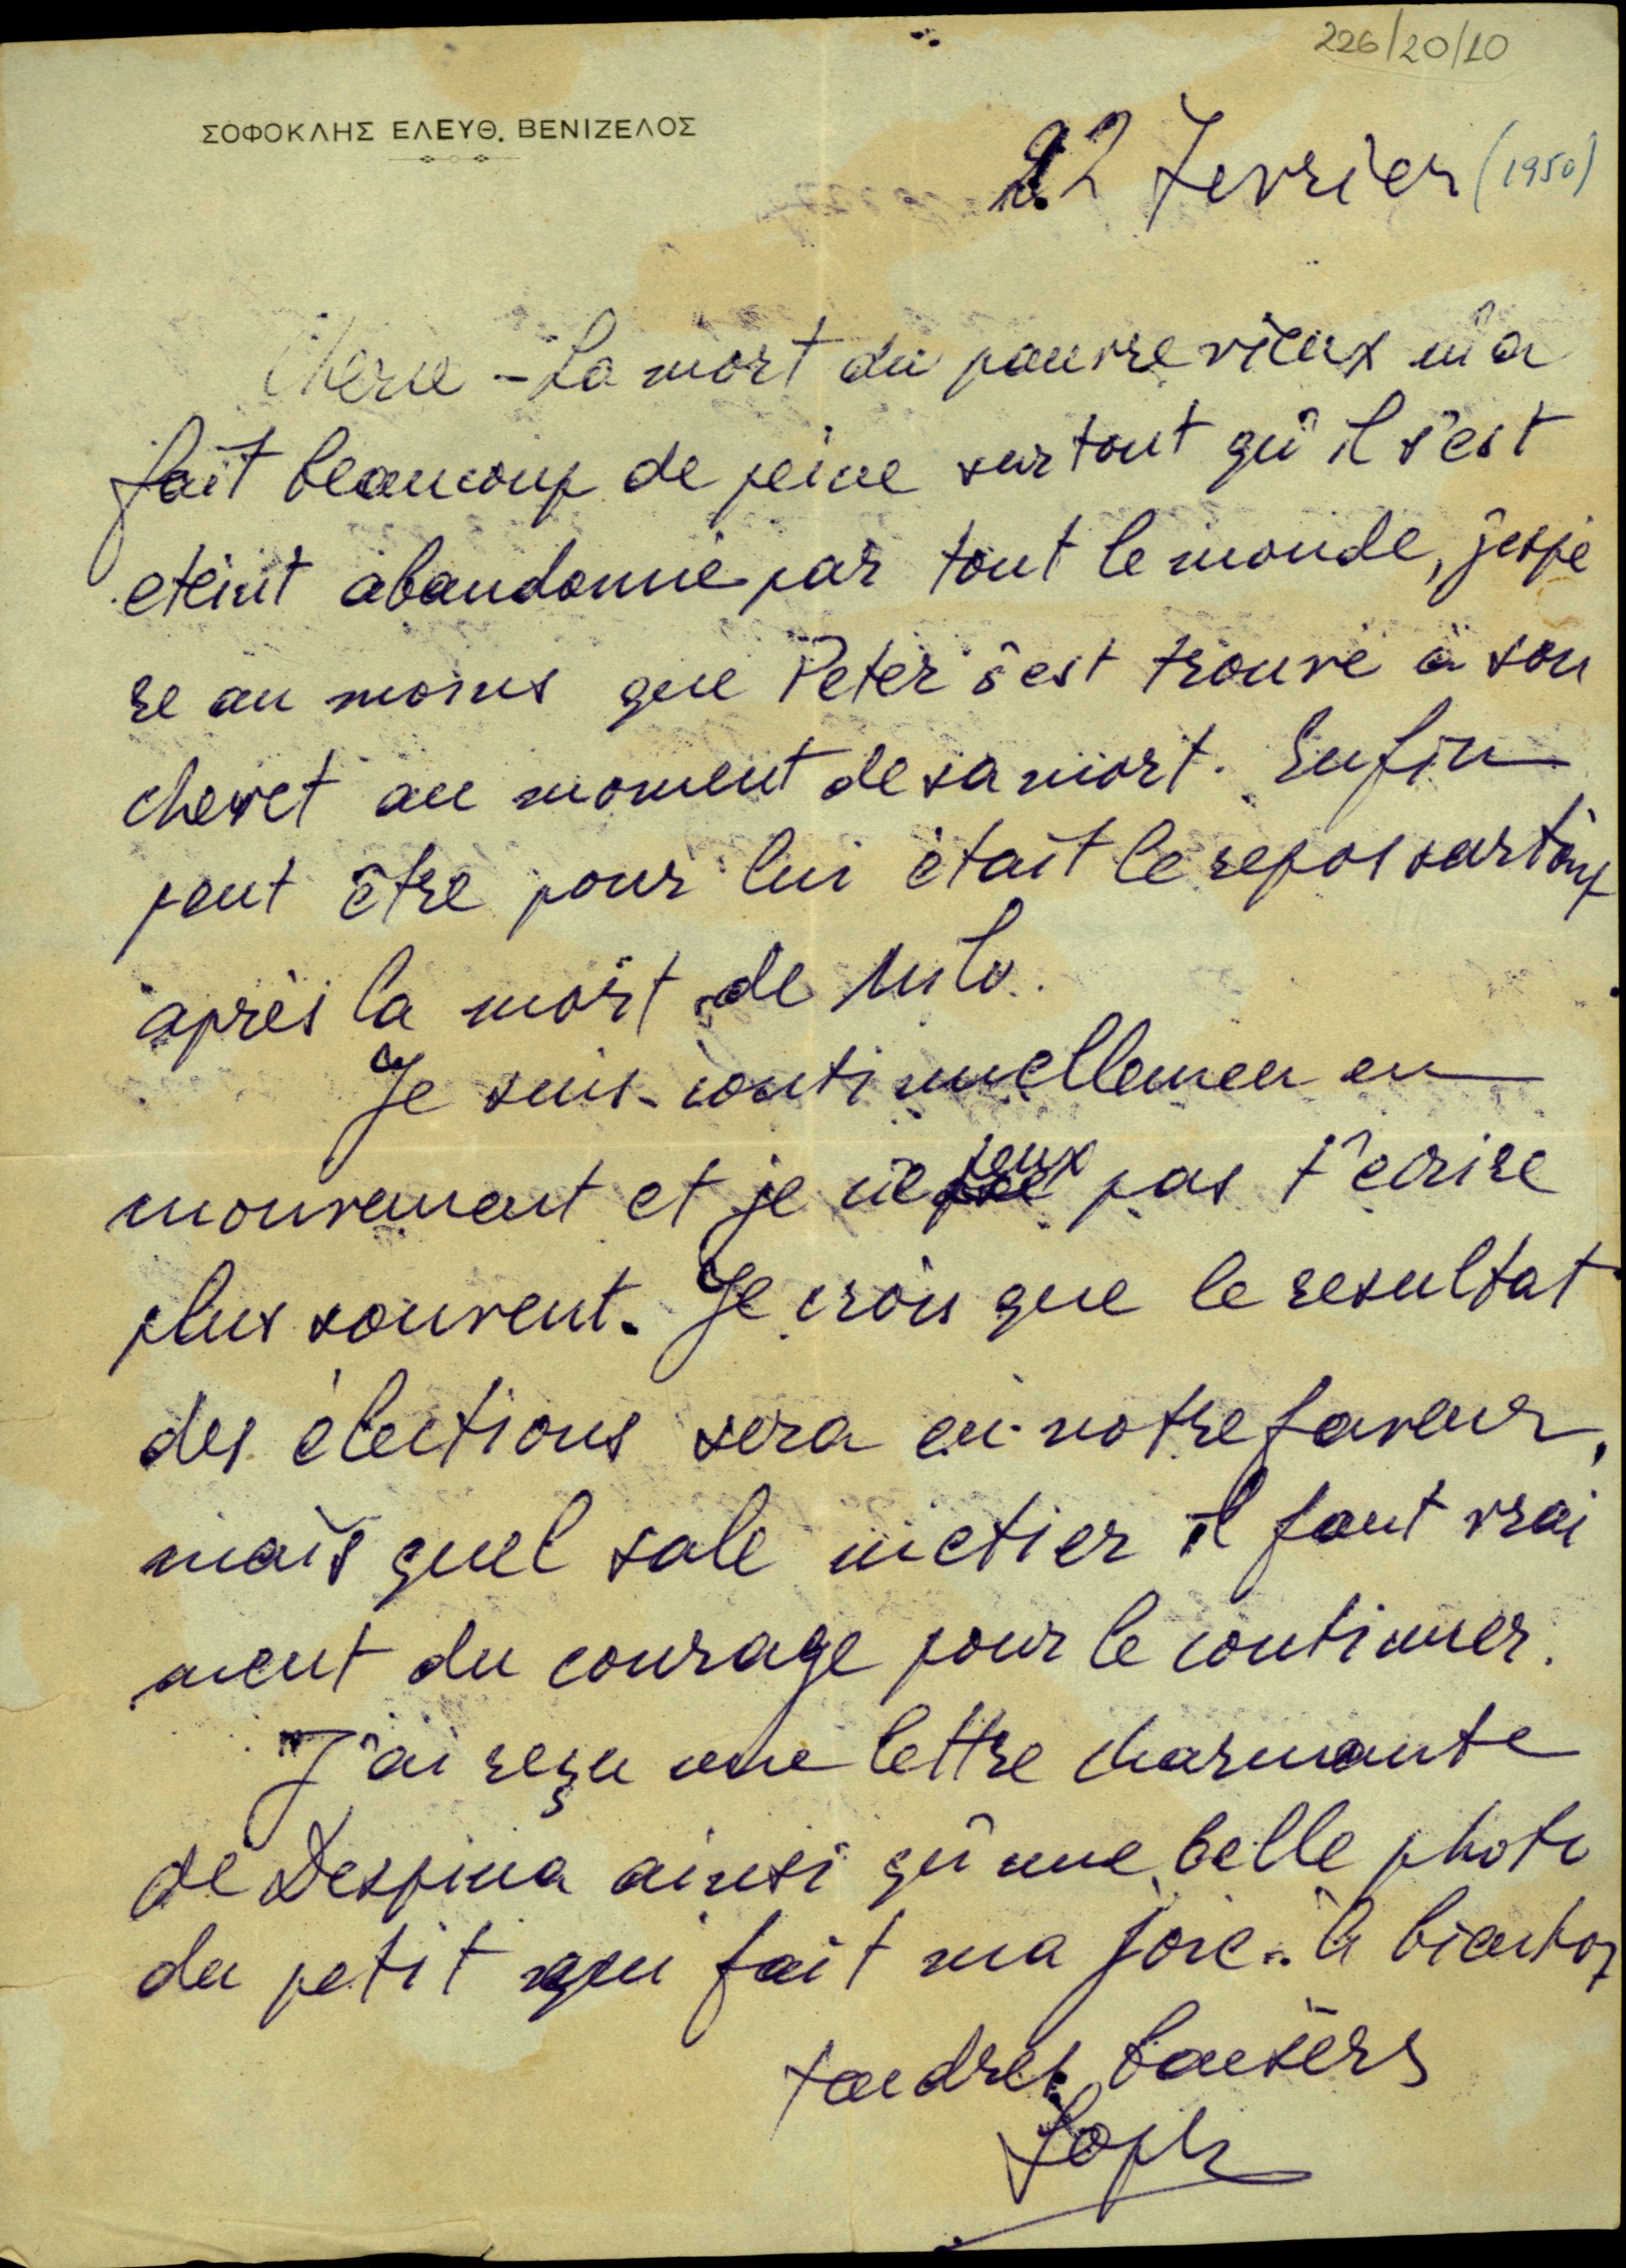 226/20/10
ΣΟΦΟΚΛΗΣ ΕΛΕΥΘ. ΒΕΝΙΖΕΛΟΣ
22 Fevrier (1950)
La mort du pauvre vieux m'a
fait beaucoup de peine surtout qu'il s'est
eteint abandonné par tout le monde, j'espe
re au moins que Peter s'est trouvé à son
chevet au moment de sa mort. Enfin
peut être pour lui était le repos surtout
après la mort de Milo.
Je suis continuellemen en
mouvement et je ne peux pas t'ecrire
plus souvent. Je crois que le resultat
des élections sera en notre faveur,
mais quel sale metier il faut vrai
ment du courage pour le continuer.
J'ai reçu une lettre charmante
de Despina ainsi qu'une belle photo
du petit qui fait ma joie. A bientot
tendres baisers
Soph